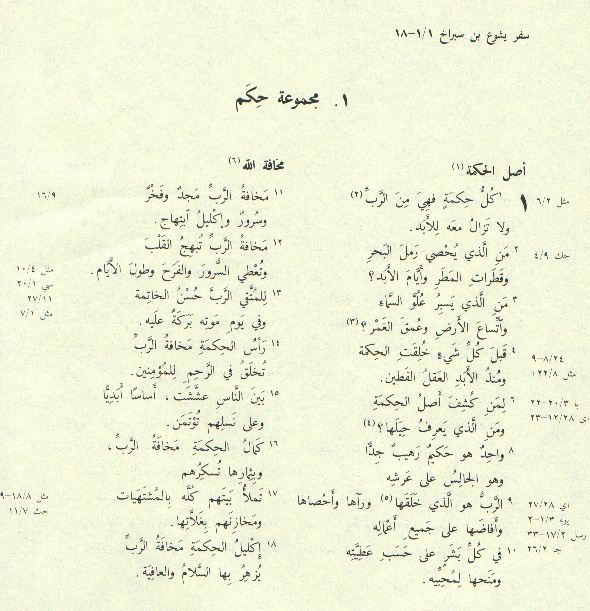 سفر يشوع بن سيراخ ١/١-١٨
١. مجموعة حِكَم
أصل الحكمة (١)
مثل ٦/٢
١ كُلُّ حِكمَةٍ فهِيَ مِنَ الرَّبِّ (٢)
ولا تَزالُ معَه لِلأَبَد.
حك ٤/٩
٢ مَنِ الَّذي يُحْصي رَملَ البَحرِ
وقَطَراتِ المَطَرِ وأَيَّامَ الأَبَد؟
٣ مَنِ الَّذي يَسبُرُ عُلُوَّ السَّماءِ
واتِّساعَ الأَرضِ وعُمقَ الغَمْر؟ (٣)
٨/٢٤-٩
٤ قَبلَ كُلِّ شَيءٍ خُلِقَتِ الحِكمَة
مثل ٢٢/٨
ومُنذُ الأَبَدِ العَقلُ الفَطين.
با ٢٠/٣-٢٢
٦ لِمَن كُشِفَ أَصلُ الحِكمَةِ
اي ١٢/٢٨-٢٣
ومَنِ الَّذي يَعرِفُ حِيَلَها؟ (٤)
٨ واحِدٌ هو حَكيمٌ رَهيبٌ جِدًّا
وهو الجالِسُ على عَرشِه
اي ٢٧/٢٨
٩ الرَّبُّ هو الَّذي خَلَقَها (٥) ورآها وأَحْصاها
يوء ١/٣-٢
وأَفاضَها على جَميعِ أَعْمالِه
رسل ١٧/٢-٣٣
١٠ في كُلِّ بَشَرٍ على حَسَبِ عَطِيَّتِه
جا ٢٦/٢
ومَنَحَها لِمُحِبِّيه.
مخافة الله (٦)
١٦/٩
١١ مَخافَةُ الرَّبِّ مَجدٌ وفَخْرٌ
وسُرورٌ وإِكْليلُ آبتِهاج.
١٢ مَخافَةُ الرَّبِّ تُبهِجُ القَلْبَ
مثل ٤/١٠
وتُعْطي السُّرورَ والفَرَحَ وطولَ الأَيَّام.
سي ٢٠/١
١٣ لِلمُتَّقي الرَّبَّ حُسْنُ الخاتِمة
٢٧/١١
وفي يَومِ مَوتِه بَرَكَةٌ علَيه.
مثل ٧/١
١٤ رَأسُ الحِكمَةِ مَخافَةُ الرَّبِّ
تُخلَقُ في الرَّحِمِ لِلمُؤمِنين.
١٥ بَينَ النَّاسِ عَشَّشَت، أَساسًا أَبَدِيًّا
وعلى نَسلِهم تُؤتَمَن.
١٦ كَمالُ الحِكمَةِ مَخافَةُ الرَّبِّ،
وبِثِمارِها تُسكِرُهم
مثل ١٨/٨-٩
١٧ تَملأُ بَيتَهم كُلَّه بِالمُشتَهَيات
حك ١١/٧
ومَخازِنَهم بِغَلاَّتِها.
١٨ إِكليلُ الحِكمَةِ مَخافَةُ الرَّبِّ
يُزهِرُ بِها السَّلامُ والعافِيَة.